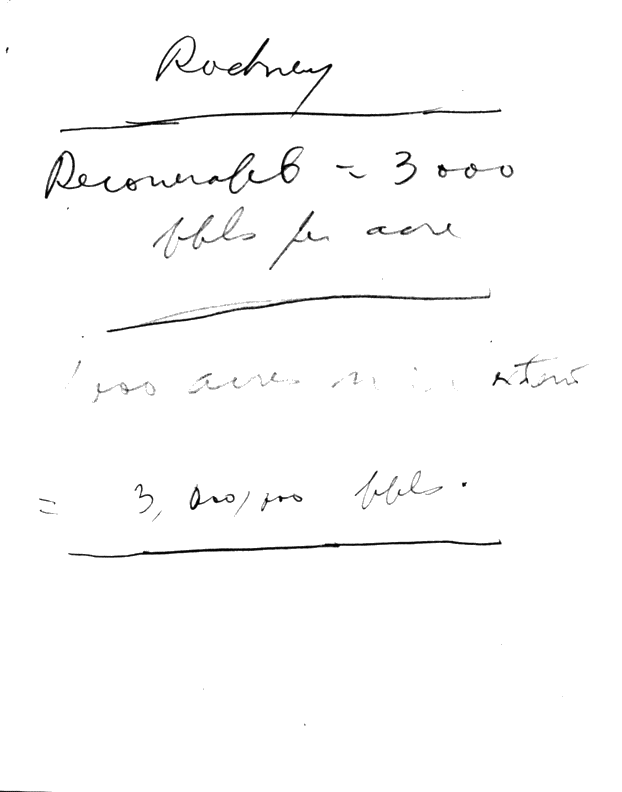 Rodney
Recoverable = 3000
bbls per acre
1000 acres
= 3,000,000 bbls.